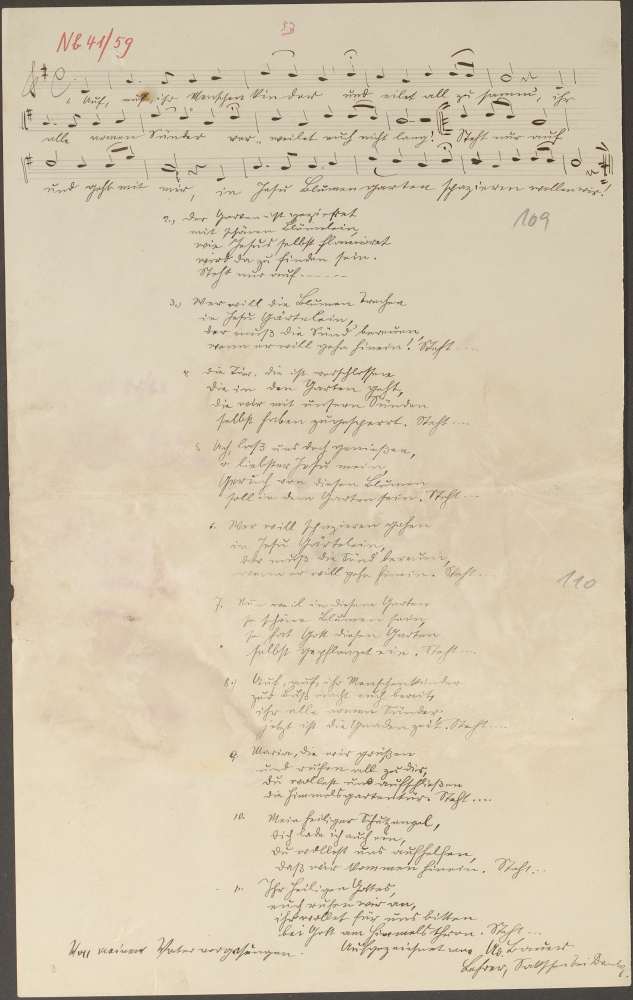 Nb 41/59
Auf, auf, ihr Menschenkinder und eilet all zu samm, ihr
alle armen Sünder ver- weilet euch nicht lang! Steht nur auf
und geht mit mir, in Jesu Blumengarten spazieren wollen wir!
109
2., Der Garten ist gezieret
mit schönen Blümelein,
wie Jesus selbst
wird da zu finden sein.
Steht nur auf ------
3.) Wer will die Blumen
in Jesu Gärtelein,
der muß die Sünd bereuen,
wenn er will gehn hinein! Steht ....
4. Die Tür, die ist verschlossen
die in den Garten geht,
die wir mit unsern Sünden
selbst haben zugesperrt. Steht ....
5. Ach, laß uns doch genießen,
o liebster Jesu mein,
Geruch von diesen Blumen
soll in dem Garten sein. Steht ...
6. Wer will spazieren gehen
in Jesu Gärtelein,
der muß die Sünd bereuen,
wenn er will gehn hinein. Steht.
110
7. Nun weil in diesem Garten
so schöne Blumen sein,
so hat Gott diesen Garten
selbst gepflanzet ein. Steht ...
8.) Auf, auf, ihr Menschenkinder
zur Buß macht euch bereit,
ihr alle armen Sünder
jetzt ist die Gnadenzeit. Steht ....
9. Maria, die wir grüßen
und rufen all zu dir,
du wollest uns aufschließen
die Himmelsgartentür. Steht ....
10. Mein heiliger Schutzengel,
dich lade ich auch ein,
du wollest uns aufhelfen,
daß wir kommen hinein. Steht ..
11. Ihr Heiligen Gottes,
euch rufen wir an,
ihr wollet für uns bitten
bei Gott am Himmelsthron. Steht ...
Von meinem Vater vorgesungen. Aufgezeichnet von
Lehrer,